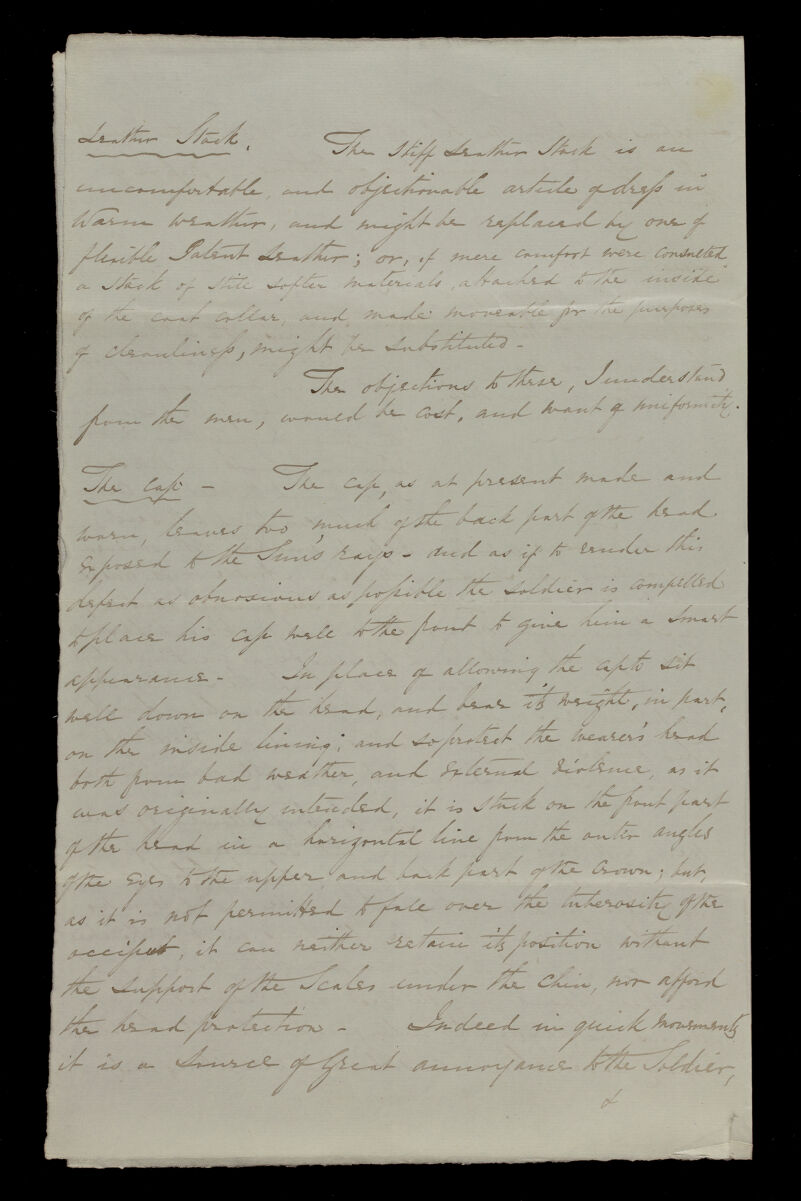 Leather Stock. The Stiff Leather Stock is an
uncomfortable, and objectionable article of dress in
Warm weather, and might be replaced by one of
flexible Patent Leather; or, if mere comfort were consulted
a Stock of still softer materials, attached to the inside
of the coat collar, and made moveable for the purposes
of cleanliness, might be substituted -
The objections to these, I understand
from the men, would be cost, and want of uniformity.
The Cap - The Cap, as at present made and
worn, leaves too much of the back part of the head
exposed to the Sun's rays - and as if to render this
defect as obnoxious as possible the soldier is compelled
to place his cap well to the front to give him a smart
appearance - In place of allowing the cap to sit
well down on the head, and bear its weight, in part,
on the inside lining; and so protect the wearer's head
both from bad weather, and external violence, as it
was originally intended, it is stuck on the front part
of the head in a horizontal line from the outer angles
of the eyes to the upper and back part of the crown; but,
as it is not permitted to fall over the tuberosity of the
occiput, it can neither retain its position without
the support of the Scales under the chin, nor afford
the head protection - Indeed in quick movements
it is a source of Great annoyance to the Soldier,
&